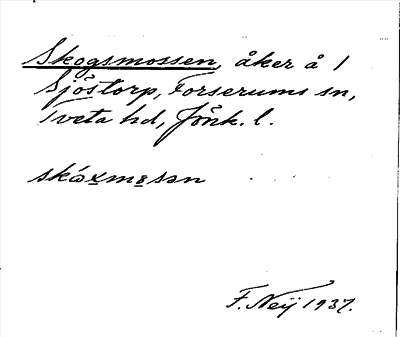 Skogsmossen, åker å 1
Sjöstorp, Forserums sn,
Tveta hd, Jönk. l.
skóxmosən
F. Neij 1937.